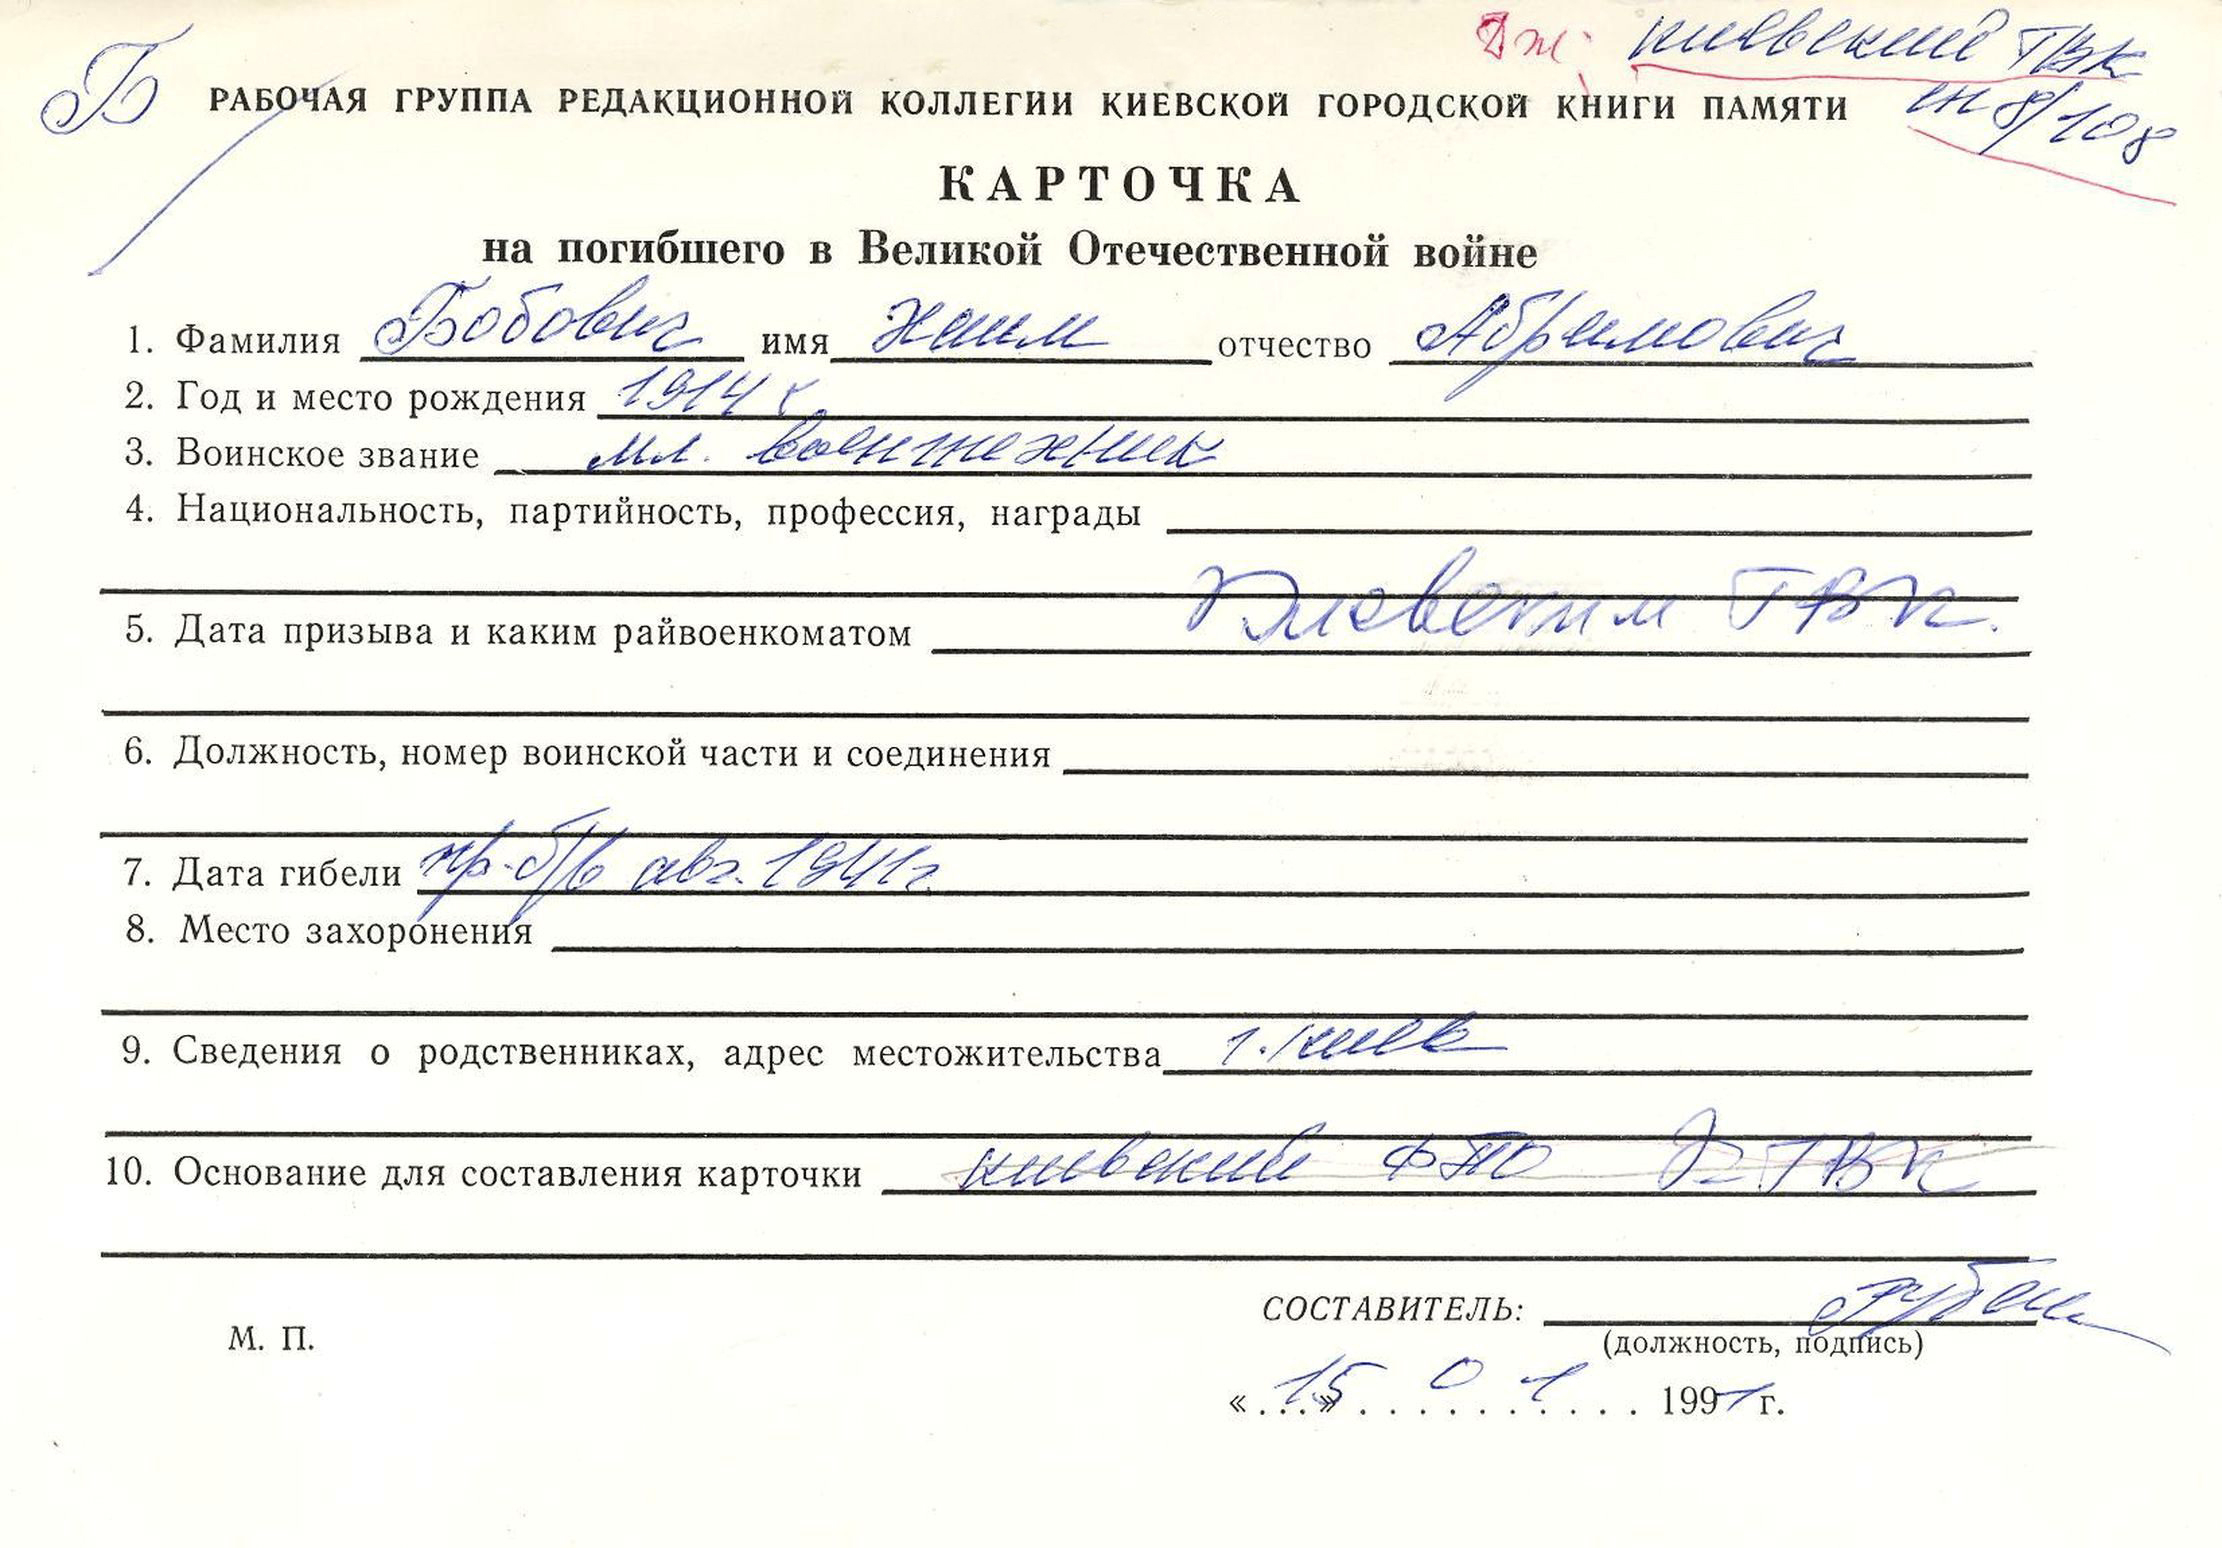 Б Киевский ГВК
РАБОЧАЯ ГРУППА РЕДАКЦИОННОЙ КОЛЛЕГИИ КИЕВСКОЙ ГОРОДСКОЙ КНИГИ ПАМЯТИ
8/108
КАРТОЧКА
на погибшего в Великой Отечественной войне
1. Фамилия Бобович имя Хаим отчество Абрамович
2. Год и место рождения 1914 г
3. Воинское звание мл. воентехник
4. Национальность, партийность, профессия, награды
Киевским ГВК.
5. Дата призыва и каким райвоенкоматом
6. Должность, номер воинской части и соединения
7. Дата гибели пр. б/в авг. 1941 г.
8. Место захоронения
9. Сведения о родственниках, адрес местожительства г. Киев
10. Основание для составления карточки Киевский ГВК
СОСТАВИТЕЛЬ:
М. П.
(должность, подпись)
«15» 01 1991 г.